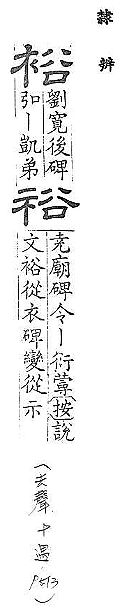 隸辨
裕
劉寬後碑
弘丨凱弟
𥙿
堯廟碑令丨衍蕈按說
文裕從衣碑變從示
(去聲十遇
P513)